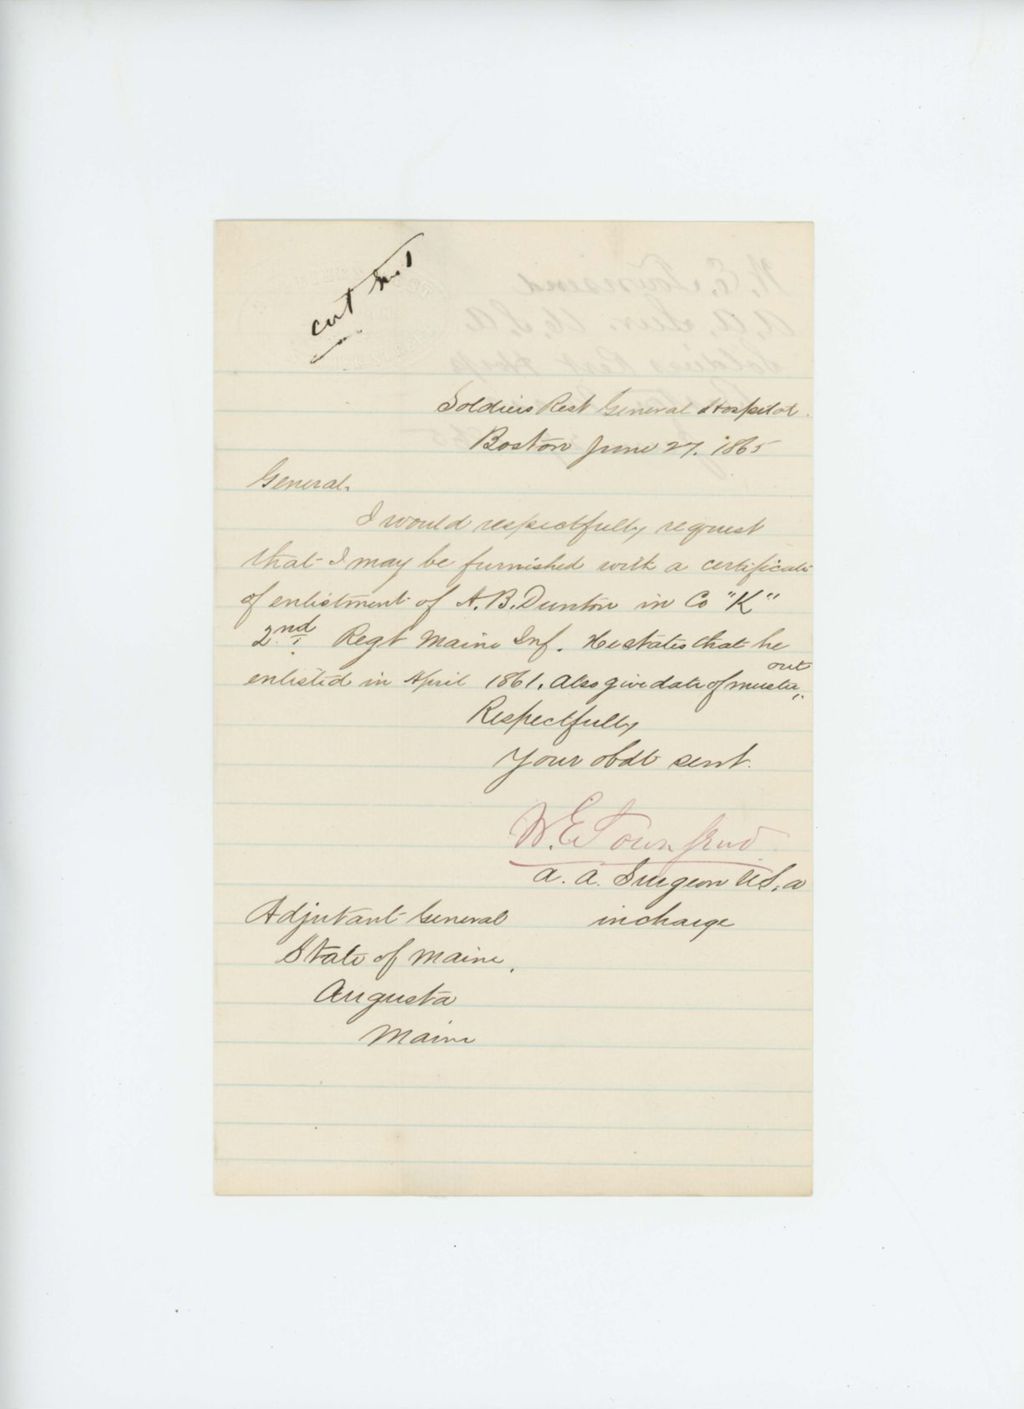 Soldiers Rest General Hospital.
Boston June 27. 1865
General.
I would respectfully request
that I may be furnished with a certificate
of enlistment of A. B. Dunton in Co "K"
2nd. Regt Maine Inf. He states that he
enlisted in April 1861. Also give date of muster out
Respectfully
Your obdt servt.
W. E. Townsend
A. A. Surgeon U.S.A
in charge
Adjutant General
State of Maine.
Augusta
Maine